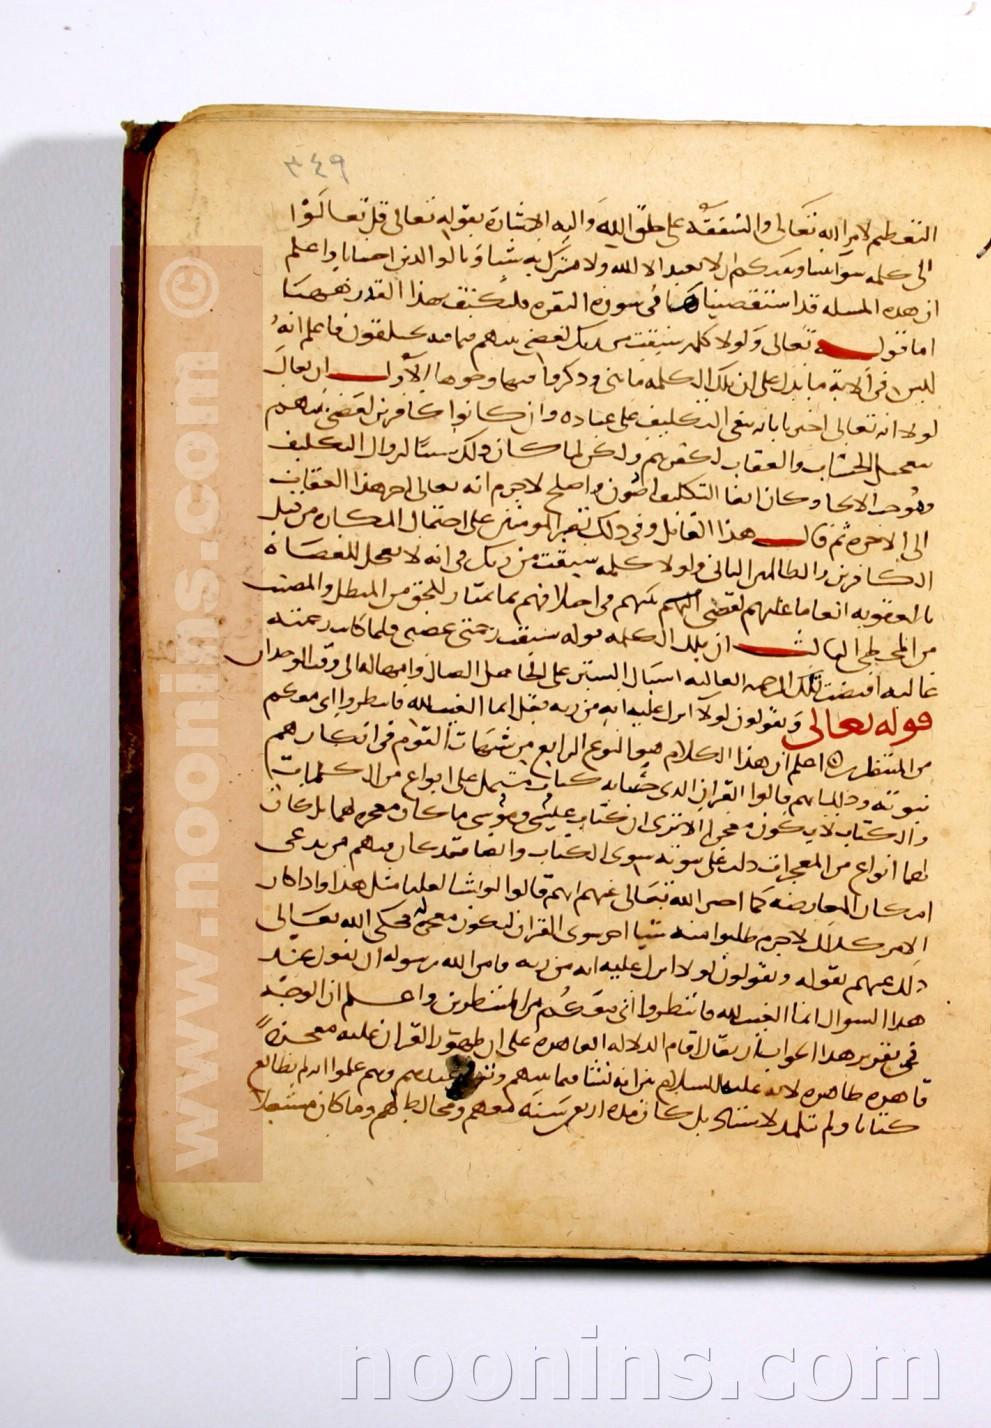 ٣٤٩
التعظيم لامر الله تعالى والشفقه على خلق الله واليه الاشارة بقوله تعالى قل تعالوا
الى كلمه سوا بيننا وبينكم ان لا نعبد الا الله ولا نشرك به شيا وبالوالدين احسانا واعلم
ان هذه المسله قد استقصيناها فى سورة البقره فلنكتف هذا القدر ههنا
اما قوله تعالى ولولا كلمه سبقت من ربك لقضى بينهم فيما فيه يختلفون فاعلم انه
ليس فى الاية ما يدل على ان تلك الكلمه ما هى وذكروا فيها وجوها الاول ان يقال
لولا انه تعالى اخبر بانه يبقى التكليف على عباده وان كانوا كافرين لقضى بينهم
بتعجيل الحساب والعقاب لكفرهم ولكن لما كان ذلك سببا لزوال التكليف
وكان ابقا التكليف اصوب واصلح لاجرم انه تعالى اخر هذا العقاب
الى الاخره ثم قال هذا القائل وفى ذلك تصبر المومنين على احتمال المكاره من قبل
الكافرين والظالمين الثانى ولولا كلمه سبقت من ربك فى انه لا يعجل للعصاة
بالعقوبه انعاما عليهم لقضى بينهم فى اختلافهم بما يمتاز المحق من المبطل والمصيب
من المخطى الثالث ان تلك الكلمه قوله سبقت رحمتى غضبى فلما كانت رحمته
غالبه اقتضت تلك الرحمه الغالبه اسبال الستر على الجاهل الضال وامهاله الى وقت الوجدان
قوله تعالى ويقولون لولا انزل عليه ايه من ربه فقل انما الغيب لله فانتظروا انى معكم
من المنتظرين اعلم ان هذا الكلام هو النوع الرابع من شبهات القوم فى انكارهم
نبوته وذلك انهم قالوا القران الذى جئتنا به كتاب مشتمل على انواع من الكلمات
والكتاب لا يكون معجزا الا ترى ان كتاب عيسى وموسى ما كان معجزه لهما بل كان
لهما انواع من المعجزات دلت على نبوتهما سوى الكتاب وايضا فقد كان فيهم من يدعى
امكان المعارضه كما اخبر الله تعالى عنهم انهم قالوا لو نشا لقلنا مثل هذا واذا كان
الامر كذلك لاجرم طلبوا منه شيا اخر سوى القران ليكون معجزه له فحكى الله تعالى
ذلك عنهم بقوله ويقولون لولا انزل عليه ايه من ربه فامر الله رسوله ان يقول عند
هذا السوال انما الغيب لله فانتظروا انى معكم من المنتظرين واعلم ان الوجه
فى تقرير هذا الجواب ان يقال اقام الدلاله القاهره على ان ظهور القران عليه معجزة
قاهره ظاهره لانه عليه السلام بين انه نشا فيما بينهم وهم علموا انه لم يطالع
كتابا ولم يتلمذ لاستاذ بل كان مدة اربعين سنة معهم ومخالطا لهم وما كان مشتغلا
© www.noonins.com
noonins.com